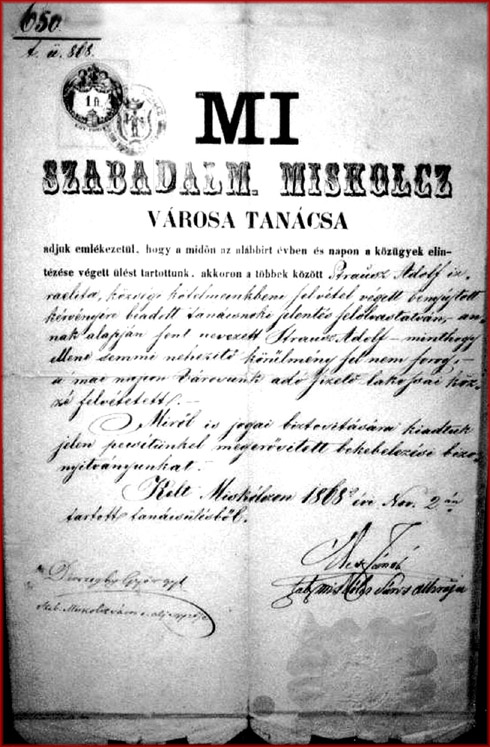 650
t. ü. 868.
1 ft
MI
SZABADALM. MISKOLCZ
VÁROSA TANÁCSA
adjuk emlékezetül, hogy a midőn az alábbirt évben és napon a közügyek elin-
tézése végett ülést tartottunk, akkoron a többek között Strausz Adolf iz-
raelita, községi kötelmenkbeni felvétel végett benyújtott
kérvényére biadott tanácsnoki jelentés felolvastatván, – an-
nak alapján fent nevezett Strausz Adolf – minthogy
ellene semmi nehezitő körülmény fel nem forog, –
a mai napon Városunk adó fizető lakossai köz-
zé felvétetett. –
Miről is jogai biztosítására kiadtuk
jelen pecsétünkel megerősitett bekebelezési bizo-
nyitványunkat.
Kelt Miskolczon 1868 év Nov. 2án
tartott tanácsülésből.
György
János